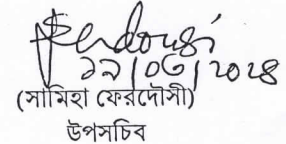 Ferdousi
১৯|০৬|২০২৪
(সামিহা ফেরদৌসী)
উপসচিব